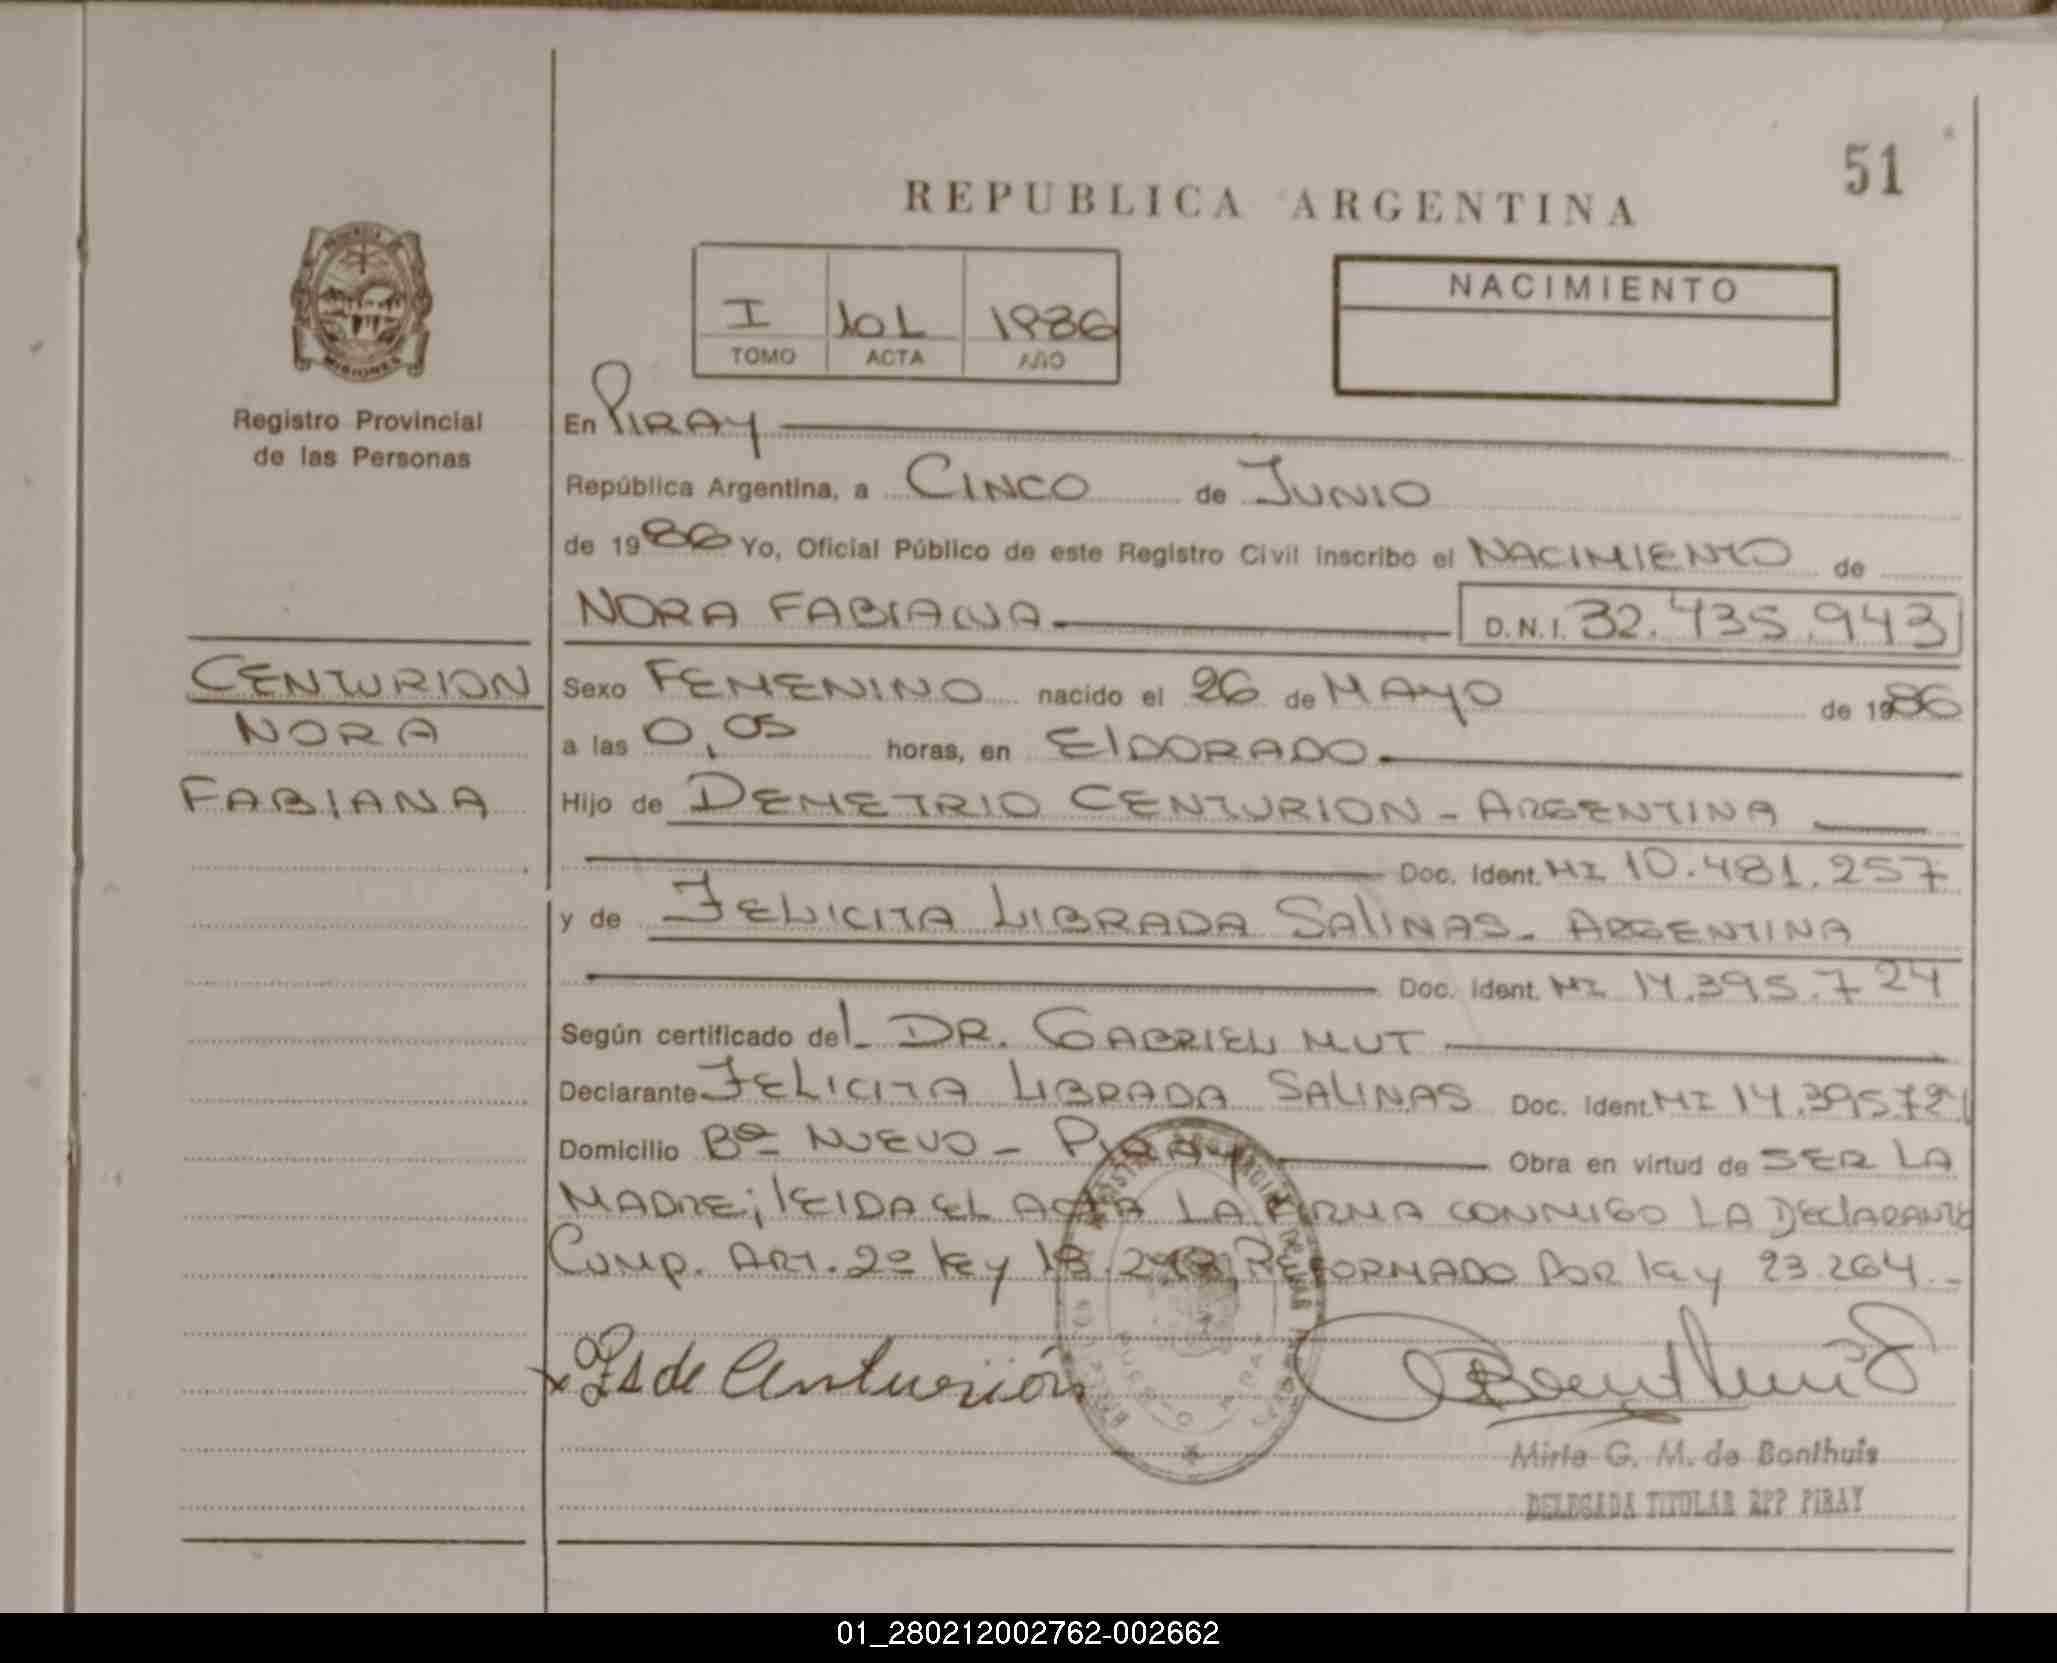 51
REPUBLICA ARGENTINA
NACIMIENTO
I 101 1986
TOMO ACTA AÑO
MISIONES
Registro Provincial
de las Personas
En PIRAY
República Argentina, a CINCO de JUNIO
de 1986 Yo, Oficial Público de este Registro Civil inscribo el NACIMIENTO de
NORA FABIANA D.N.I. 32.435.943
CENTURION
NORA
FABIANA
Sexo FEMENINO nacido el 26 de MAYO de 1986
a las 0,05 horas, en ElDORADO
Hijo de DEMETRIO CENTURION - ARGENTINA
Doc. Ident. MI 10.481.257
y de FELICITA LIBRADA SALINAS - ARGENTINA
Doc. Ident. MI 14.395.724
Según certificado del DR. GABRIEL MUT
Declarante FELICITA LIBRADA SALINAS Doc. Ident. MI 14.395.724
Domicilio Bº NUEVO - PIRAY Obra en virtud de SER LA
MADRE; lEIDA EL ACTA LA FIRMA CONMIGO LA DEClARANTE
COMP. ART. 2º ley 18.248, REFORMADO POR ley 23.264.-
de Centurión
Mirta G. M. de Bonthuis
DELEGADA TITULAR RPP PIRAY
01_280212002762-002662